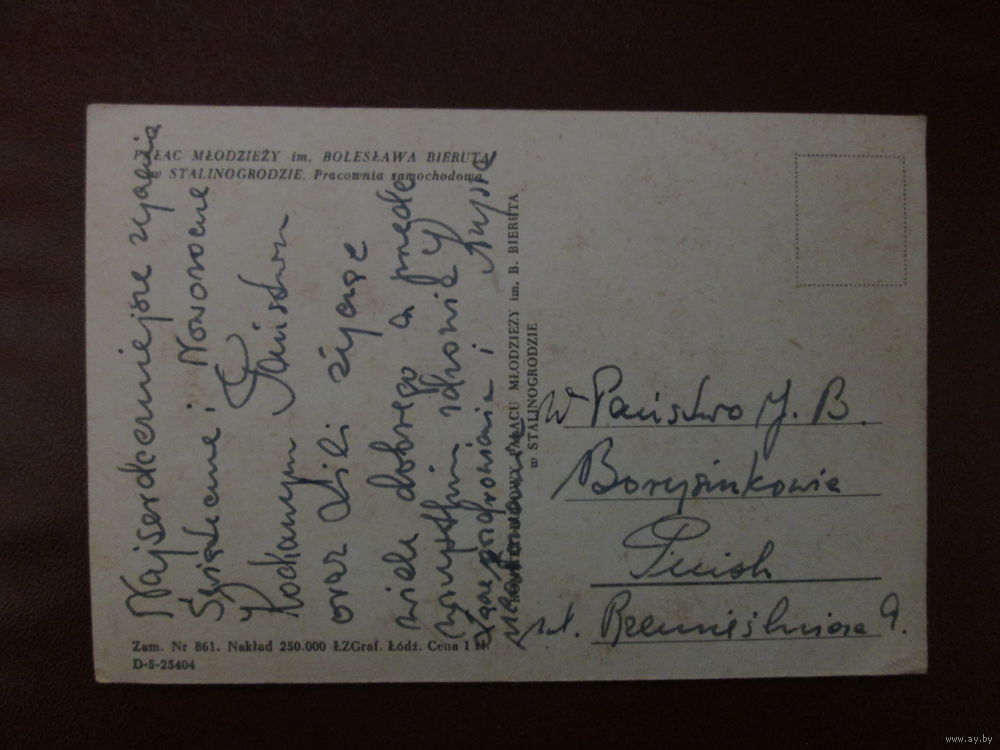 PAŁAC MŁODZIEŻY im. BOLESŁAWA BIERUTA
w STALINOGRODZIE. Pracownia samochodowa
Najserdeczniejsze życzenia
Świąteczne i Noworoczne
Kochanym Państwu
oraz Lili życzę
wiele dobrego a przede
wszystkim zdrowia
pozdrowienia i
KOMITET BUDOWY PAŁACU MŁODZIEŻY im. B. BIERUTA
w STALINOGRODZIE
W Państwo J. B.
Borysinkowie
Pińsk
ul. Rzemieślnicza 9.
Zam. Nr 861. Nakład 250.000 ŁZGraf. Łódź. Cena 1 zł.
D-5-25404
www.ay.by